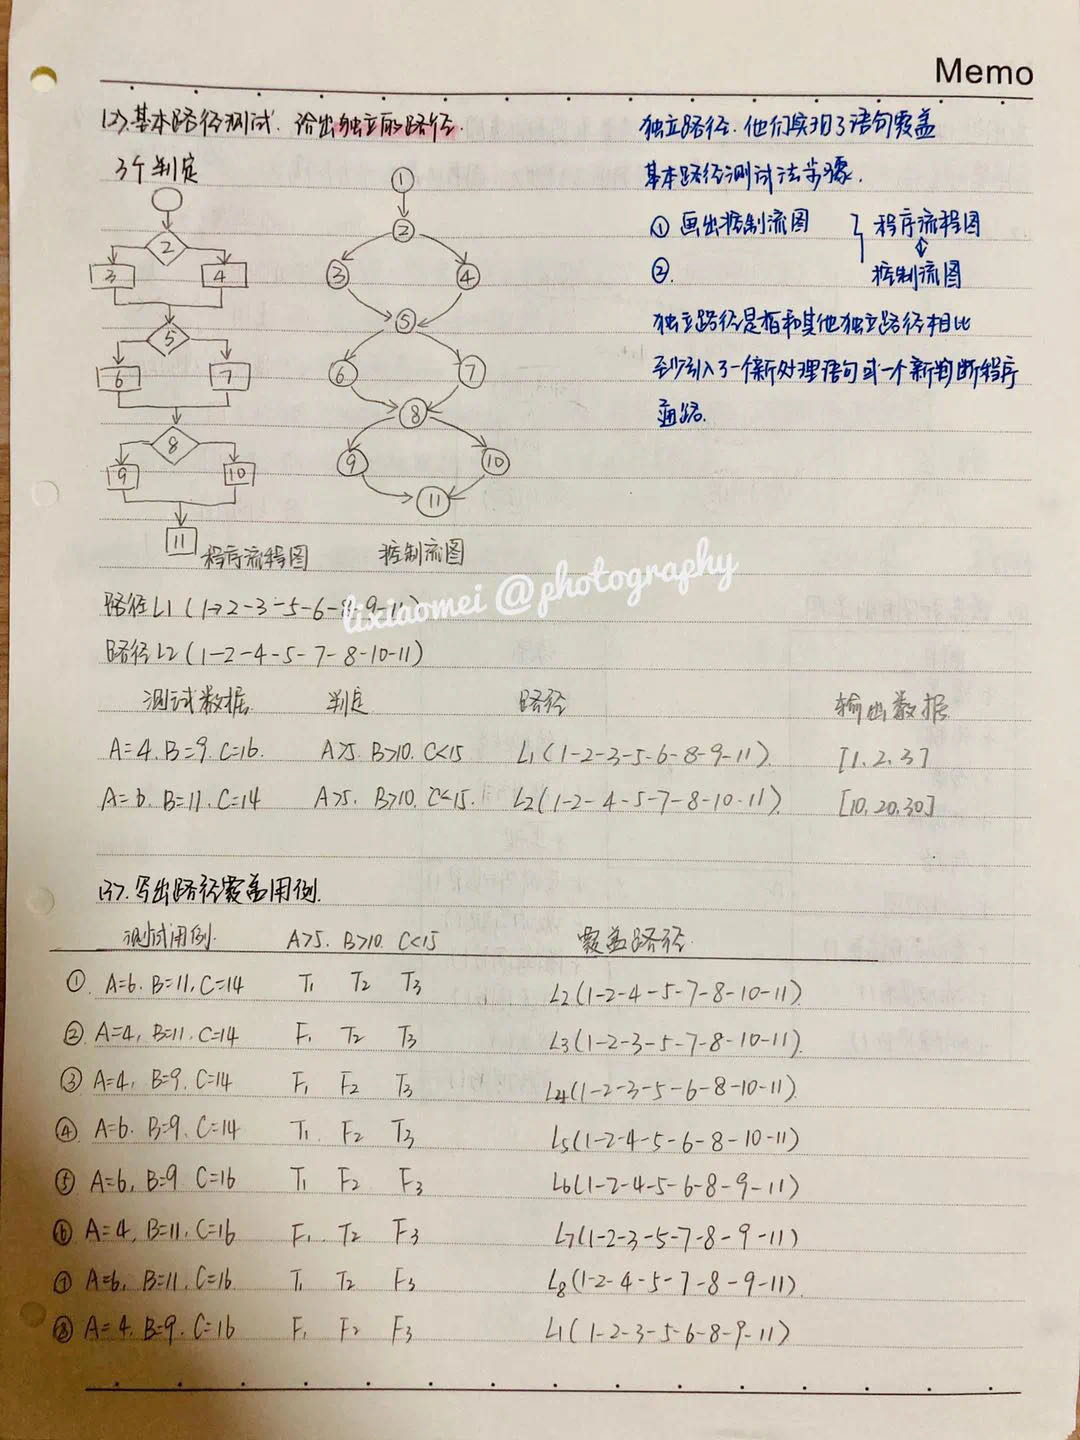 Memo
(2).基本路径测试.给出独立的路径.
3个判定
2
3 4
5
6 7
8
9 10
11
程序流程图
1
2
3 4
5
6 7
8
9 10
11
控制流图
独立路径.他们实现了语句覆盖
基本路径测试法步骤.
① 画出控制流图
②.
程序流程图
控制流图
独立路径是指和其他独立路径相比
至少引入了一个新处理语句或一个新判断程序
通路.
路径L1(1→2-3-5-6-8-9-11)
路径L2(1-2-4-5-7-8-10-11)
lixiaomei @photography
测试数据 判定 路径 输出数据
A=4.B=9.C=16. A>5.B>10.C<15 L1(1-2-3-5-6-8-9-11). [1.2.3]
A=6.B=11.C=14 A>5.B>10.C<15. L2(1-2-4-5-7-8-10-11). [10.20.30]
(3).写出路径覆盖用例.
测试用例. A>5. B>10. C<15 覆盖路径.
① A=6.B=11,C=14 T1 T2 T3 L2(1-2-4-5-7-8-10-11).
② A=4,B=11.C=14 F1 T2 T3 L3(1-2-3-5-7-8-10-11).
③ A=4,B=9.C=14 F1 F2 T3 L4(1-2-3-5-6-8-10-11).
④ A=6.B=9.C=14 T1 F2 T3 L5(1-2-4-5-6-8-10-11)
⑤ A=6,B=9 C=16 T1 F2 F3 L6(1-2-4-5-6-8-9-11)
⑥ A=4,B=11.C=16 F1 T2 F3 L7(1-2-3-5-7-8-9-11)
⑦ A=6,B=11.C=16 T1 T2 F3 L8(1-2-4-5-7-8-9-11).
⑧ A=4.B=9.C=16 F1 F2 F3 L1(1-2-3-5-6-8-9-11)